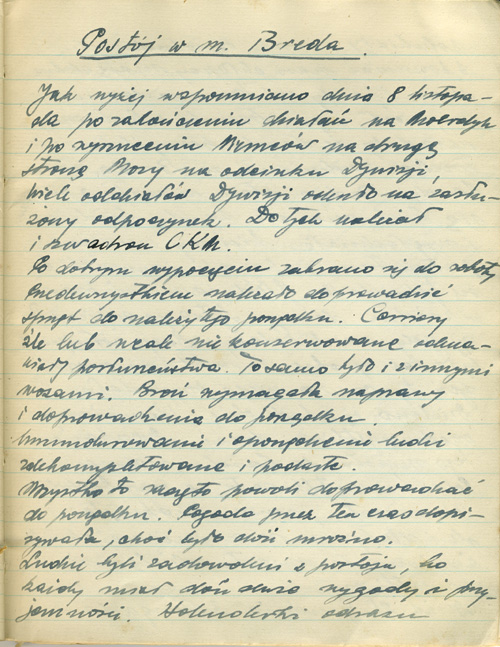 Postój w m. Breda.
Jak wyżej wspomniano dnia 8 listopa-
da po zakończeniu działań na Moerdyk
i po wyrzuceniu Niemców na drugą
stronę Mozy na odcinku Dywizji,
wiele oddziałów Dywizji odeszło na zasłu-
żony odpoczynek. Do tych należał
i szwadron CKM.
Po dobrym wypoczęciu zabrano się do roboty
Przedewszystkiem należało doprowadzić
sprzęt do należytego porządku. Carriery
źle lub wcale nie konserwowane odma-
wiały posłuszeństwa. To samo było i z innymi
wozami. Broń wymagała naprawy
i doprowadzenia do porządku.
Umundurowanie i oporządzenie ludzi
zdekompletowane i podarte.
Wszystko to zaczęto powoli doprowadzać
do porządku. Pogoda przez ten czas dopi-
sywała, choć było dość mroźno.
Ludzie byli zadowoleni z postoju, bo
każdy miał dość dużo wygody i przy-
jemności. Holenderki odrazu